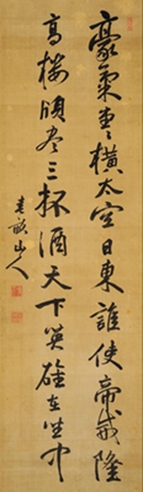 豪氣堂々橫太空日東誰使帝威隆
高樓傾盡三杯酒天下英雄在坐中
春畝山人